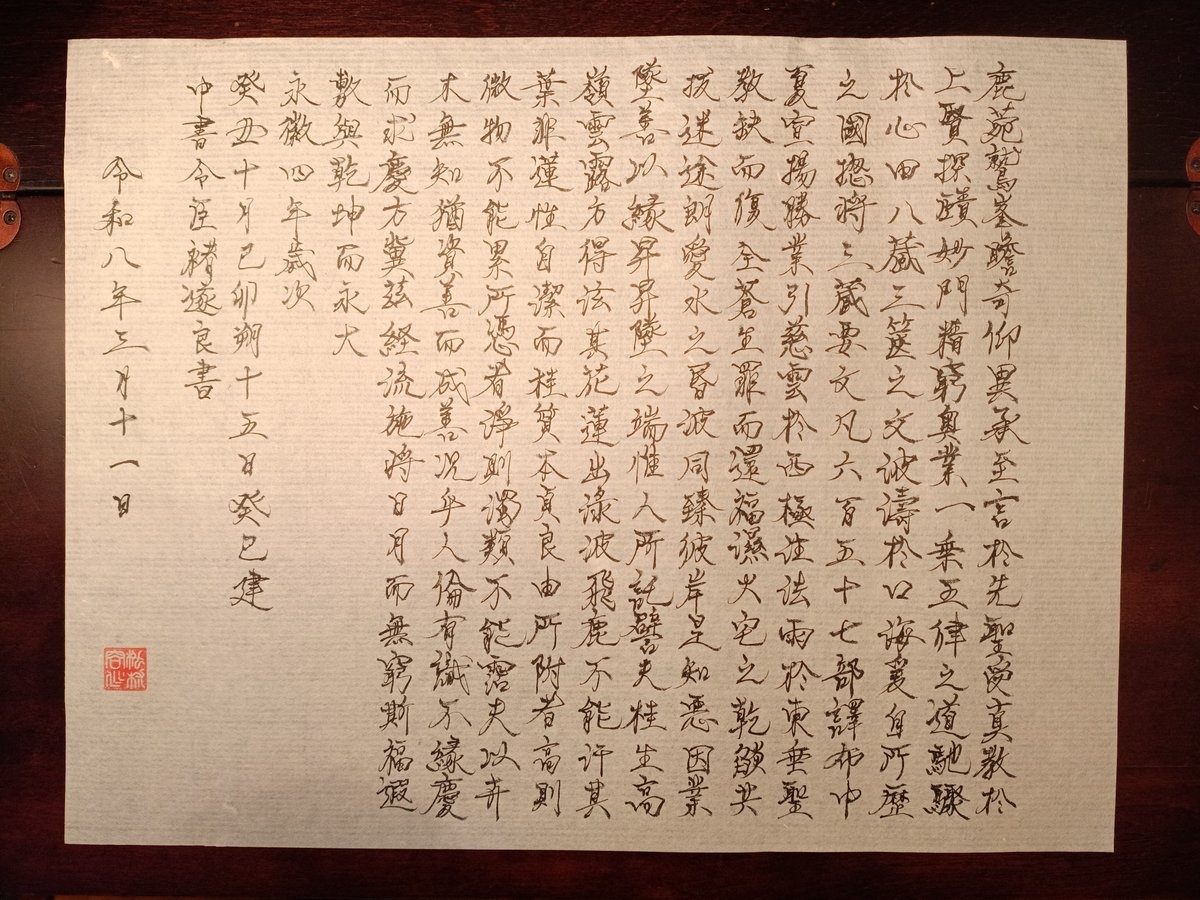 鹿菀鷲峯瞻奇仰異承至言於先聖受真教於
上賢探賾妙門精窮奥業一乗五律之道馳驟
於心田八蔵三篋之文波濤於口海爰自所歴
之國揔将三蔵要文凡六百五十七部譯布中
夏宣揚勝業引慈雲於西極注法雨於東垂聖
教缺而復全蒼生罪而還福濕火宅之乾燄共
拔迷途朗愛水之昏波同臻彼岸是知悪因業
墜善以縁昇昇墜之端惟人所託譬夫桂生高
嶺雲露方得泫其花蓮出渌波飛塵不能汙其
葉非蓮性自潔而桂質本貞良由所附者高則
微物不能累所憑者淨則濁類不能霑夫以卉
木無知猶資善而成善况乎人倫有識不縁慶
而求慶方冀茲経流施将日月而無窮斯福遐
敷與乾坤而永大
永徽四年歳次
癸丑十月己卯朔十五日癸巳建
中書令臣褚遂良書
令和八年三月十一日